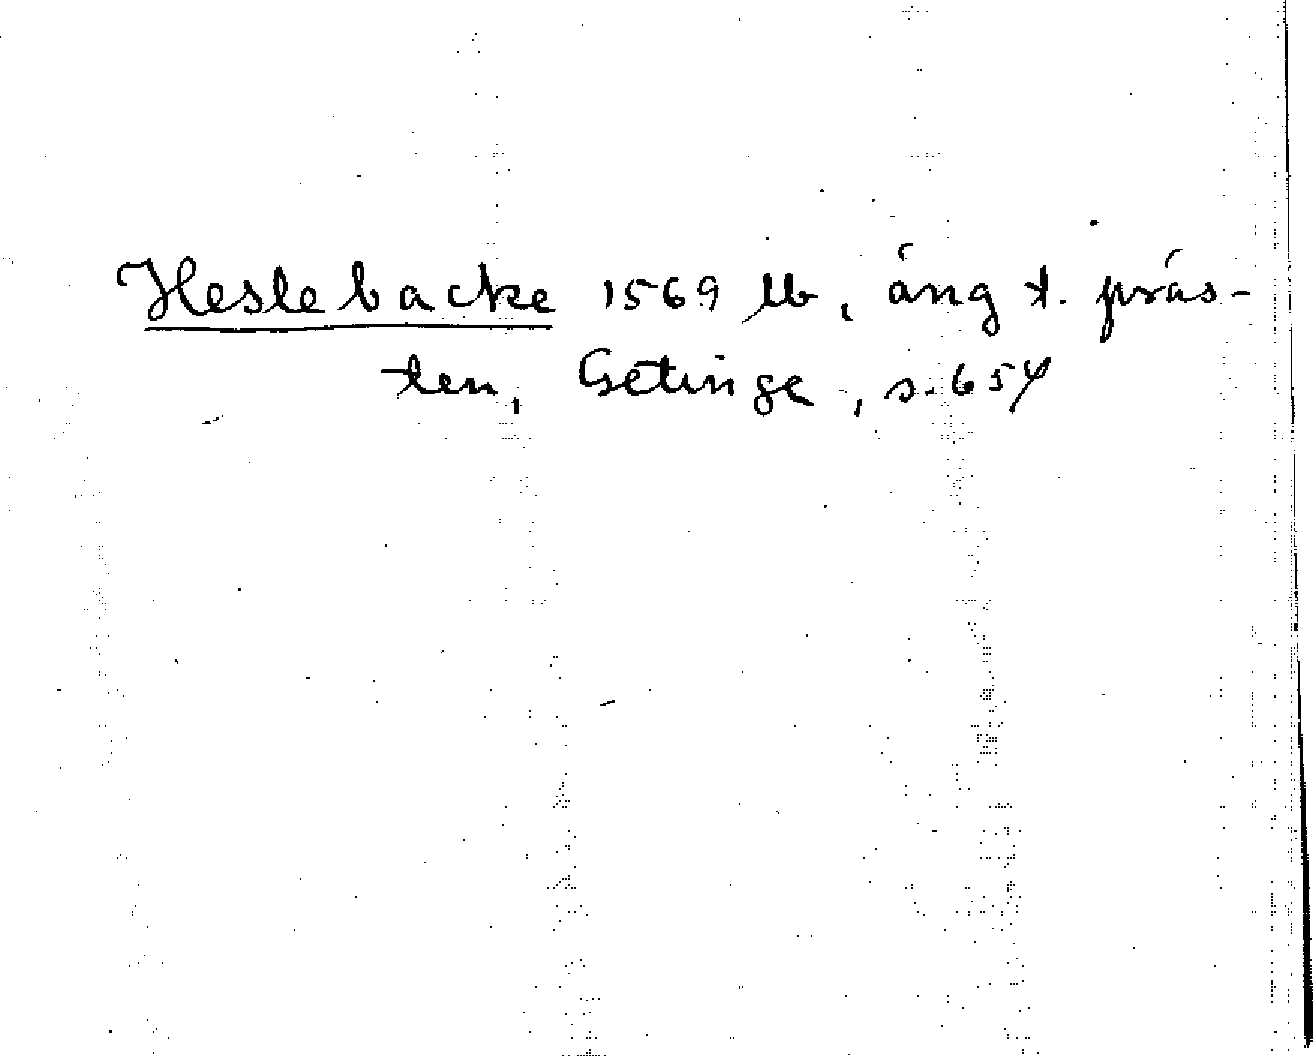 Heslebacke 1569 lb, äng t. präs-
ten, Getinge, s. 654